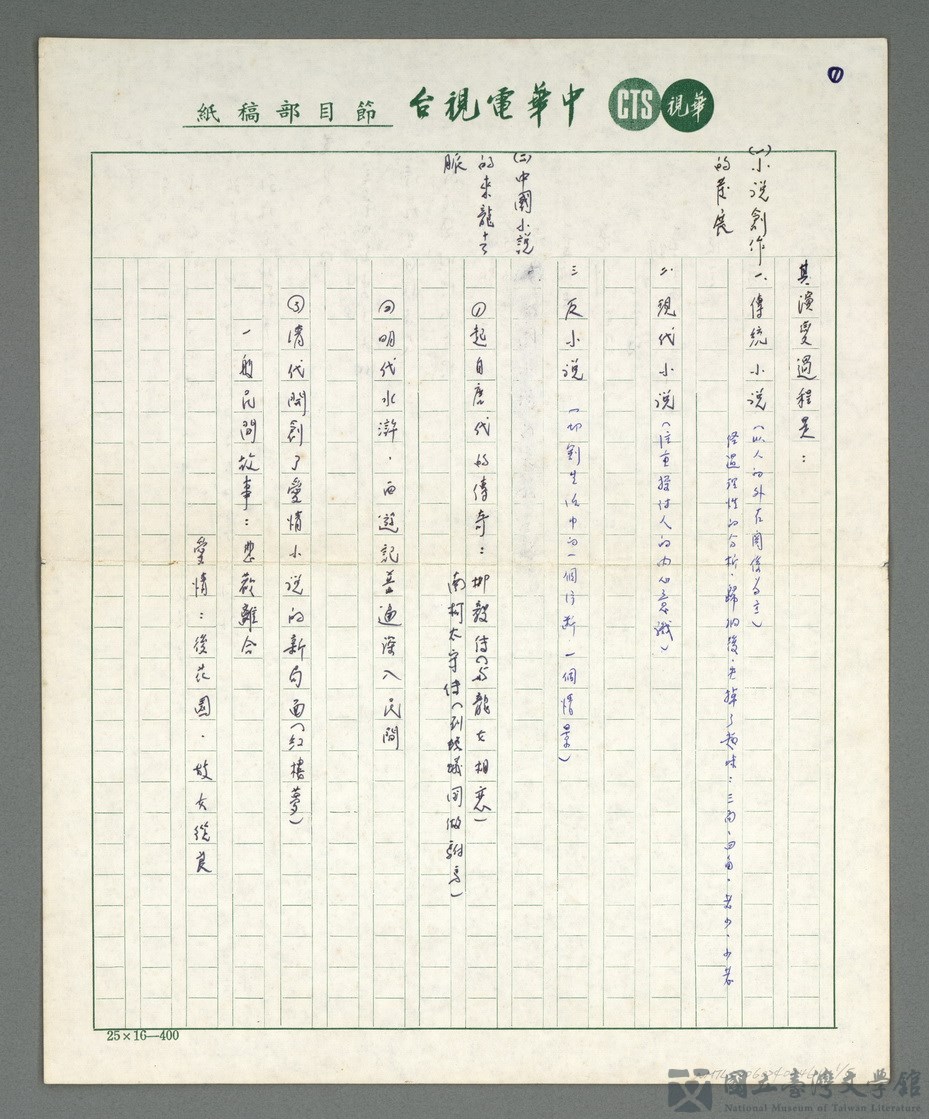 ①
中華電視台節目部稿紙
CTS 華視
(一)小說創作
的發展
其演變過程是：
一、傳統小說(以人的外在關係為主)
經過理性的分析、歸納後，失掉了趣味：三角、四角、老少、少老
二、現代小說(注重探討人的內心意識)
三 反小說 (切割生活中的一個片斷 一個情景)
(二)中國小說
的來龍去
脈
①起自唐代的傳奇：柳毅傳(與龍女相戀)
南柯太守傳(到螞蟻國做駙馬)
②明代水滸．西遊記普遍深入民間
③清代開創了愛情小說的新局面(紅樓夢)
一般民間故事：悲歡離合
愛情：後花園．妓女從良
25×16—400
國立臺灣文學館
National Museum of Taiwan Literature